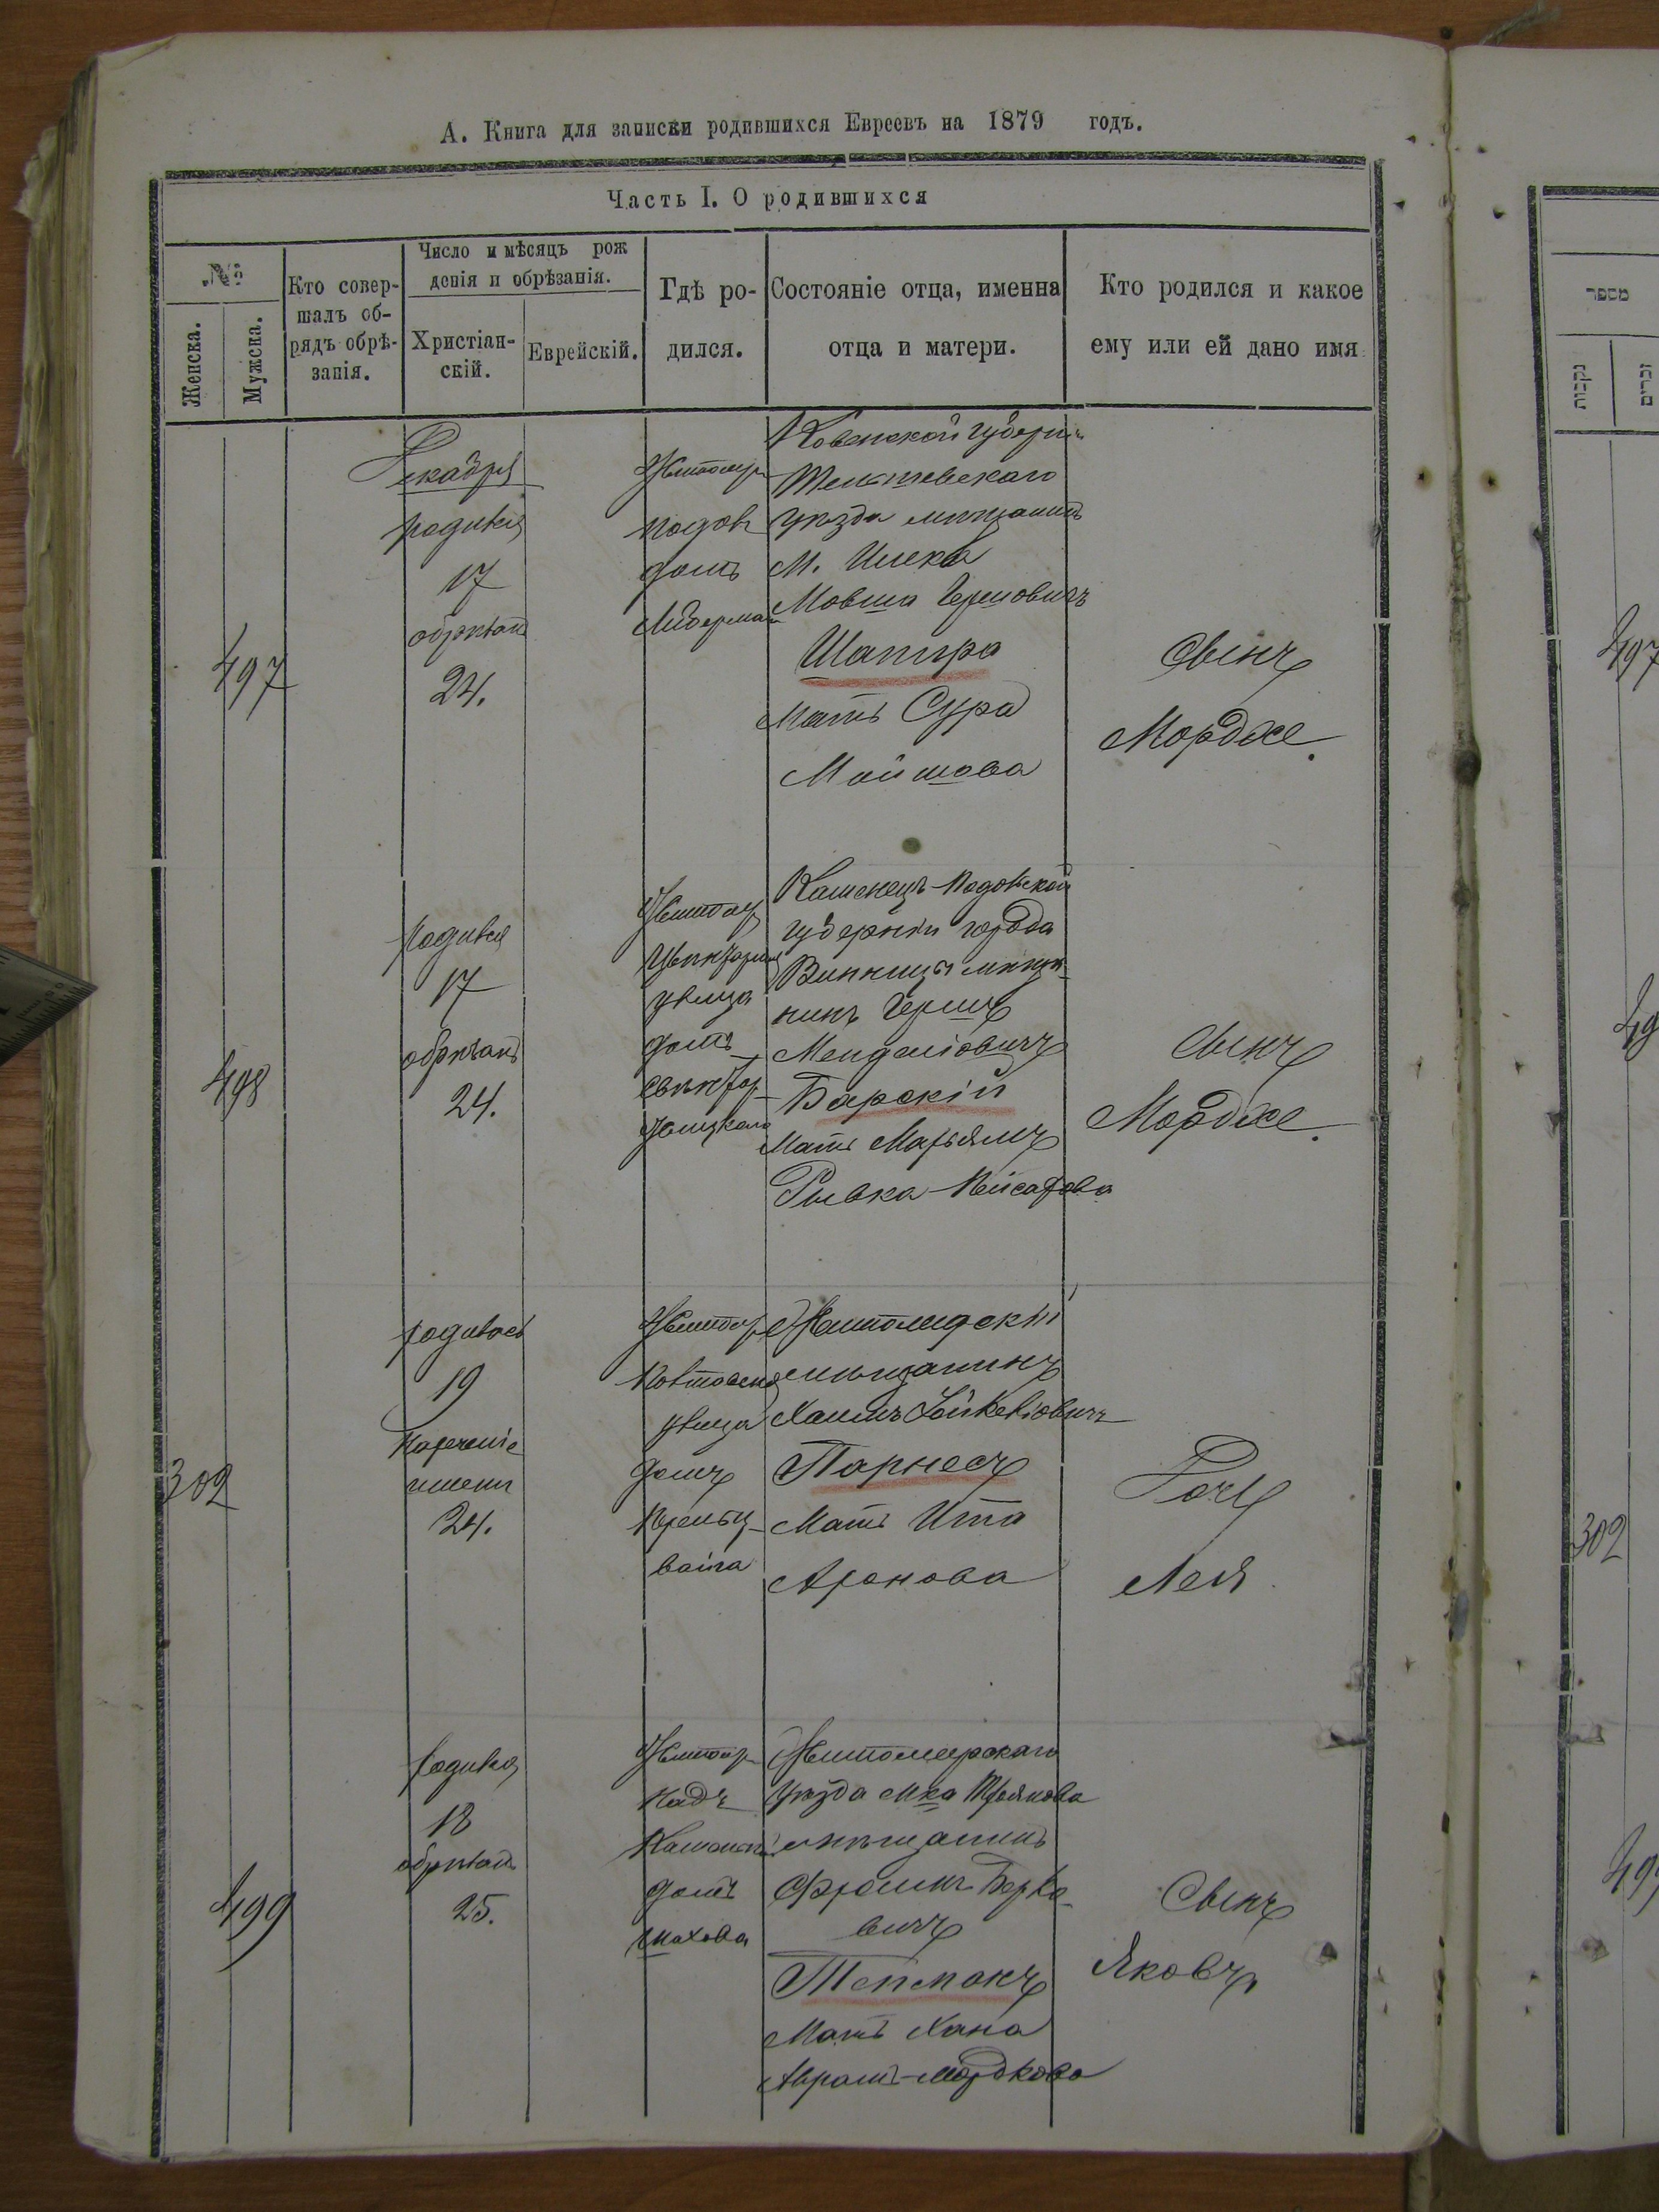 А. Книга для записки родившихся Евреевъ на 1879 годъ.
Часть I. О родившихся
№
Женска.
Мужска.
Кто совер-
шалъ об-
рядъ обрѣ-
занія.
Число и мѣсяцъ рож
денія и обрѣзанія.
Христіан-
скій.
Еврейскій.
Гдѣ ро-
дился.
Состояніе отца, именна
отца и матери.
Кто родился и какое
ему или ей дано имя
497
Декабря
родился
17
обрѣзанъ
24.
Житомир
домъ
Либерман
Ковенской губерніи
Тельшевскаго
уѣзда мѣщанинъ
М.
Мовша Гершовичъ
Шапира
Мать Сура
Мошкова
Сынъ
Мордке.
498
родился
17
обрѣзанъ
24.
Житомир
улица
домъ
Каменецъ-Подольской
губерніи города
Винницы мѣща-
нинъ Гершъ
Менделіовичъ
Барскій
Мать Марьямъ
Рывка
Сынъ
Мордке.
302
родилась
19
Нареченіе
имени
24.
Житомир
улица
домъ
Житомирскій
мѣщанинъ
Хаимъ
Парнесъ
Мать Ита
Аронова
Дочь
Лея
499
родился
18
обрѣзанъ
25.
Житомир
надъ
домъ
Житомирскаго
уѣзда мка Троянова
мѣщанинъ
Фроимъ Берко-
вичъ
Тепманъ
Мать Хана
Аврамъ-Мордкова
Сынъ
Яковъ
מספר
נקבות
זכרים
497
49
302
499